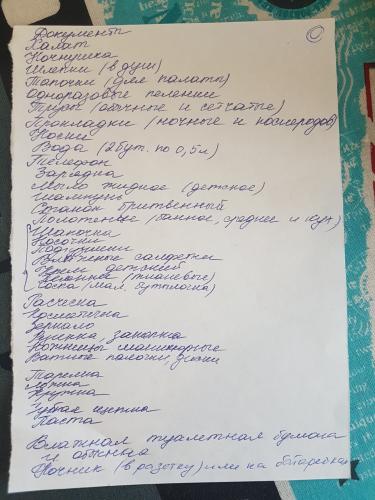 Документы
Халат
Ночнушка
Шлепки (в душ)
Тапочки (для палаты)
Одноразовые пеленки
Трусы (обычные и сетчатые)
Прокладки (ночные и послеродов)
Носки
Вода (2бут. по 0,5л)
Телефон
Зарядка
Мыло жидкое (детское)
Шампунь
Станок бритвенный
Полотенце (банное, среднее и кух)
Шапочка
Носочки
Подгузники
Влажные салфетки
Крем детский
Пеленки (тканевые)
Соска (мал. бутылочка)
Расческа
Косметичка
Зеркало
Резинка, заколка
Ножницы маникюрные
Ватные палочки, диски
Тарелка
Ложка
Кружка
Зубная щетка
Паста
Влажная туалетная бумага
и обычная
Ночник (в розетку) или на батарейках